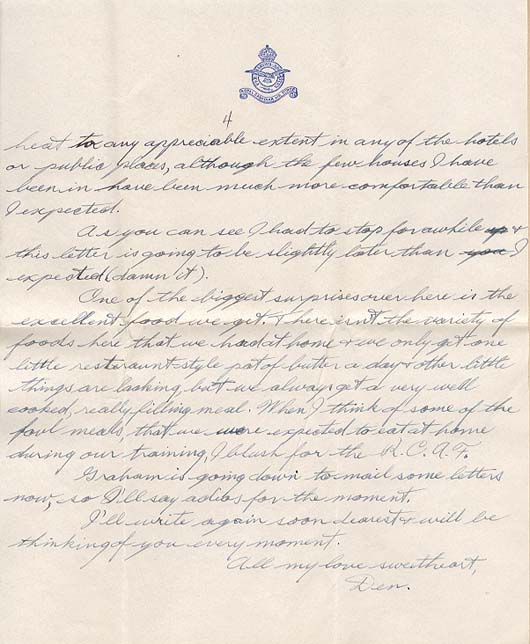 4
heat to any appreciable extent in any of the hotels
or public places, although the few houses I have
been in have been much more comfortable than
I expected.
As you can see I had to stop for awhile up &
this letter is going to be slightly later than you I
expected (damn it).
One of the biggest surprises over here is the
excellent food we get. There isn't the variety of
foods here that we had at home & we only get one
little resteraunt-style pat of butter a day & other little
things are lacking, but we always get a very well
cooked, really filling meal. When I think of some of the
foul meals, that we were expected to eat at home
during our training, I blush for the R.C.A.F.
Graham is going down to mail some letters
now, so I'll say adios for the moment.
I'll write again soon dearest & will be
thinking of you every moment.
All my love sweetheart,
Den.